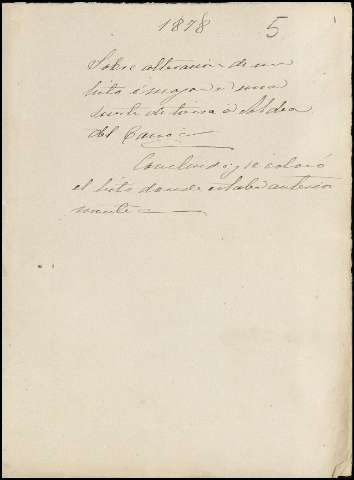 1878 5
Sobre alteracion de un
hito é mojon en una
suerte de tierra á Aldea
del Cano
Concluido y se colocó
el hito donde estaba anterior
mente